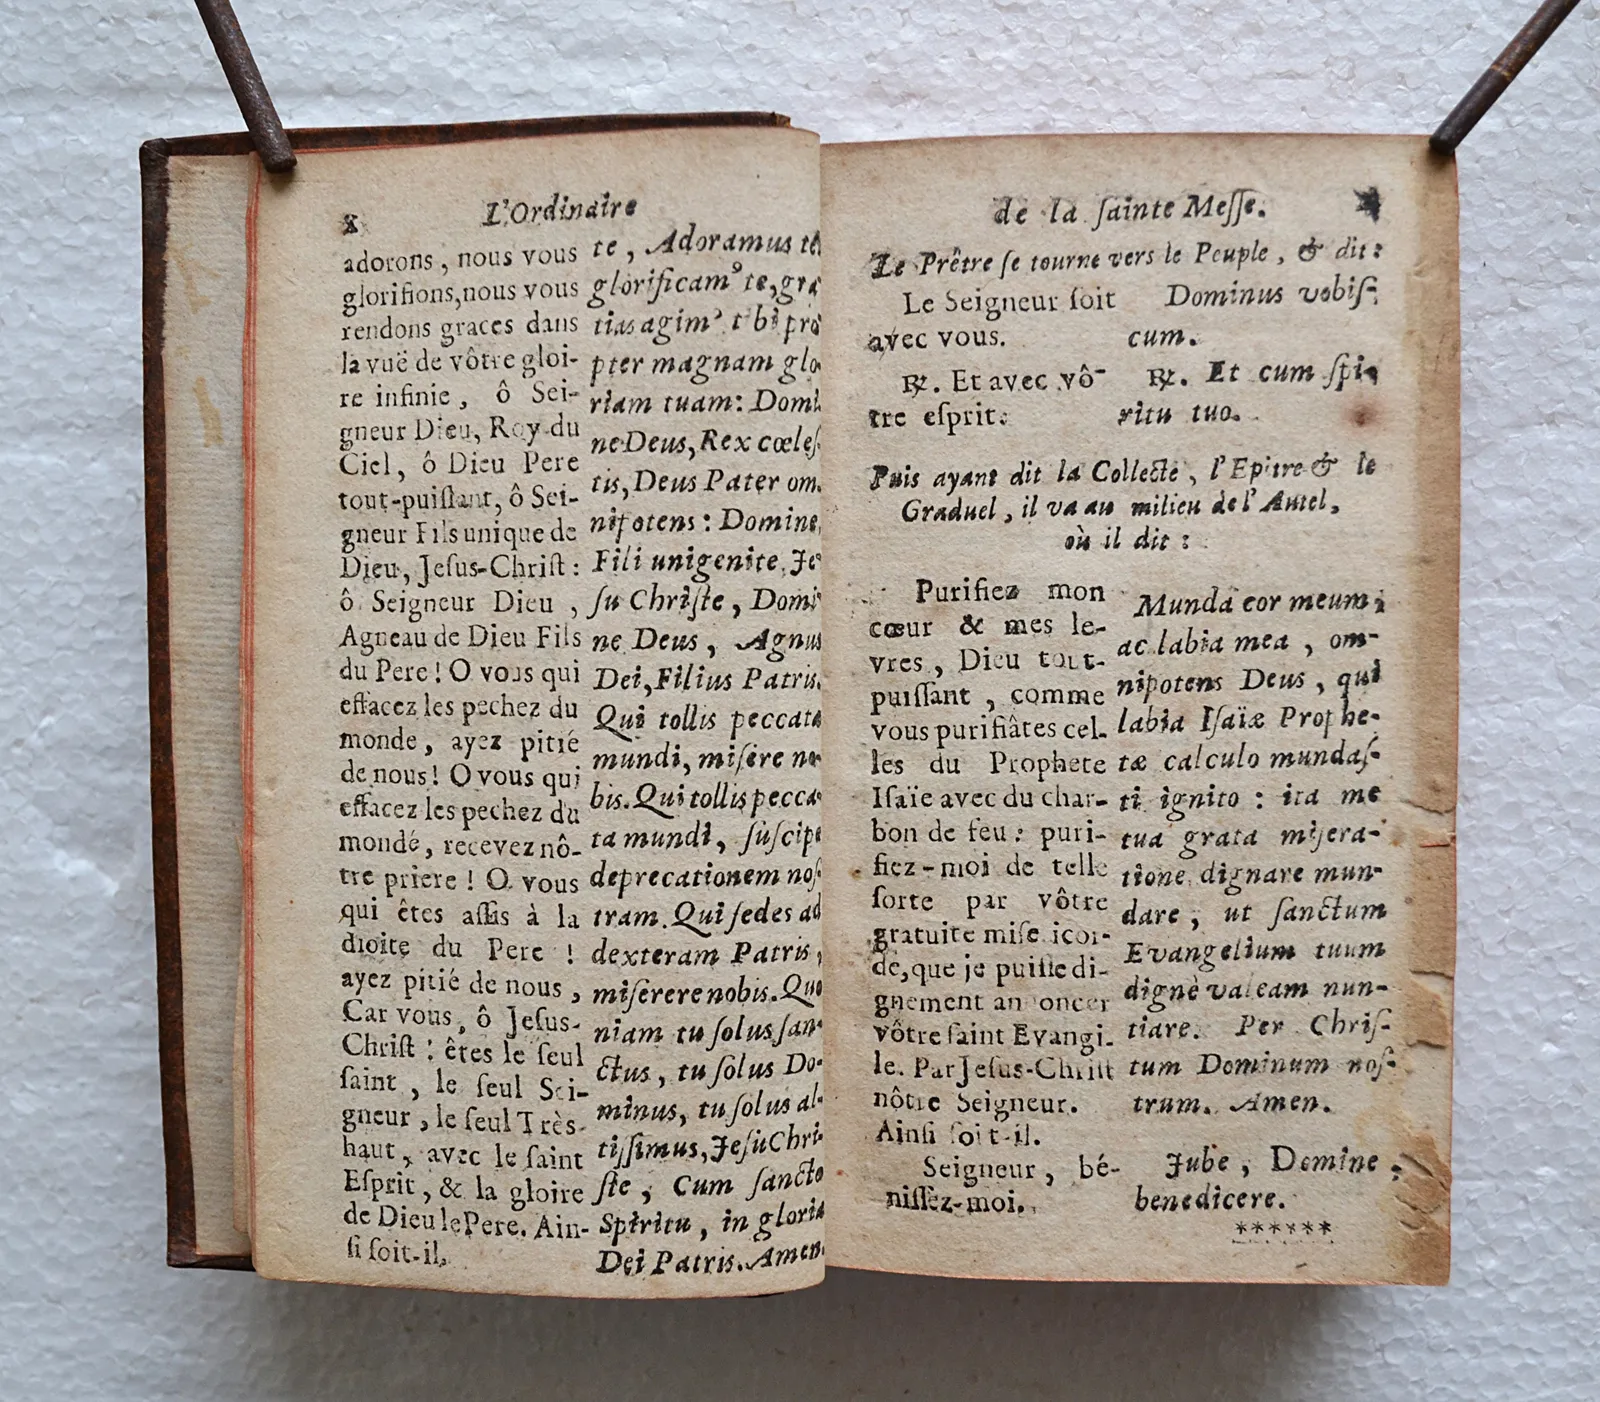 8 L'Ordinaire
adorons, nous vous
glorifions, nous vous
rendons graces dans
la vuë de vôtre gloi-
re infinie, ô Sei-
gneur Dieu, Roy du
Ciel, ô Dieu Pere
tout-puiſſant, ô Sei-
gneur Fils unique de
Dieu, Jeſus-Chriſt :
ô Seigneur Dieu ,
Agneau de Dieu Fils
du Pere ! O vous qui
effacez les pechez du
monde, ayez pitié
de nous ! O vous qui
effacez les pechez du
monde, recevez nô-
tre priere ! O vous
qui êtes aſſis à la
droite du Pere !
ayez pitié de nous ,
Car vous, ô Jeſus-
Chriſt : êtes le ſeul
ſaint , le ſeul Sei-
gneur , le ſeul Très-
haut, avec le ſaint
Eſprit, & la gloire
de Dieu le Pere. Ain-
ſi ſoit-il.
te, Adoramus te
glorificam⁹ te, gra
tias agim⁹ tibi pro
pter magnam glo
riam tuam : Domi
ne Deus, Rex cœleſ
tis, Deus Pater om
nipotens : Domine
Fili unigenite, Je
ſu Chriſte, Domi
ne Deus, Agnus
Dei, Filius Patris.
Qui tollis peccata
mundi, miſere no
bis. Qui tollis pecca
ta mundi, ſuſcipe
deprecationem noſ
tram. Qui ſedes ad
dexteram Patris,
miſerere nobis. Quo
niam tu ſolus ſan
ctus, tu ſolus Do-
minus, tu ſolus al-
tiſſimus, Jeſu Chri-
ſte, Cum ſancto
Spiritu, in gloria
Dei Patris. Amen.
de la ſainte Meſſe.
Le Prêtre ſe tourne vers le Peuple, & dit :
Le Seigneur ſoit
avec vous.
℟. Et avec vô-
tre eſprit.
Dominus vobiſ-
cum.
℟. Et cum ſpi-
ritu tuo.
Puis ayant dit la Collecte, l'Epitre & le
Graduel, il va au milieu de l'Autel,
où il dit :
Purifiez mon
cœur & mes le-
vres, Dieu tout-
puiſſant, comme
vous purifiâtes cel-
les du Prophete
Iſaïe avec du char-
bon de feu : puri-
fiez-moi de telle
ſorte par vôtre
gratuite miſericor-
de, que je puiſſe di-
gnement annoncer
vôtre ſaint Evangi-
le. Par Jeſus-Chriſt
nôtre Seigneur.
Ainſi ſoit-il.
Seigneur, bé-
niſſez-moi.
Munda cor meum,
ac labia mea, om-
nipotens Deus, qui
labia Iſaïæ Prophe-
tæ calculo mundaſ-
ti ignito : ita me
tua grata miſera-
tione dignare mun-
dare, ut ſanctum
Evangelium tuum
dignè valeam nun-
tiare. Per Chriſ-
tum Dominum noſ-
trum. Amen.
Jube, Domine
benedicere.
******